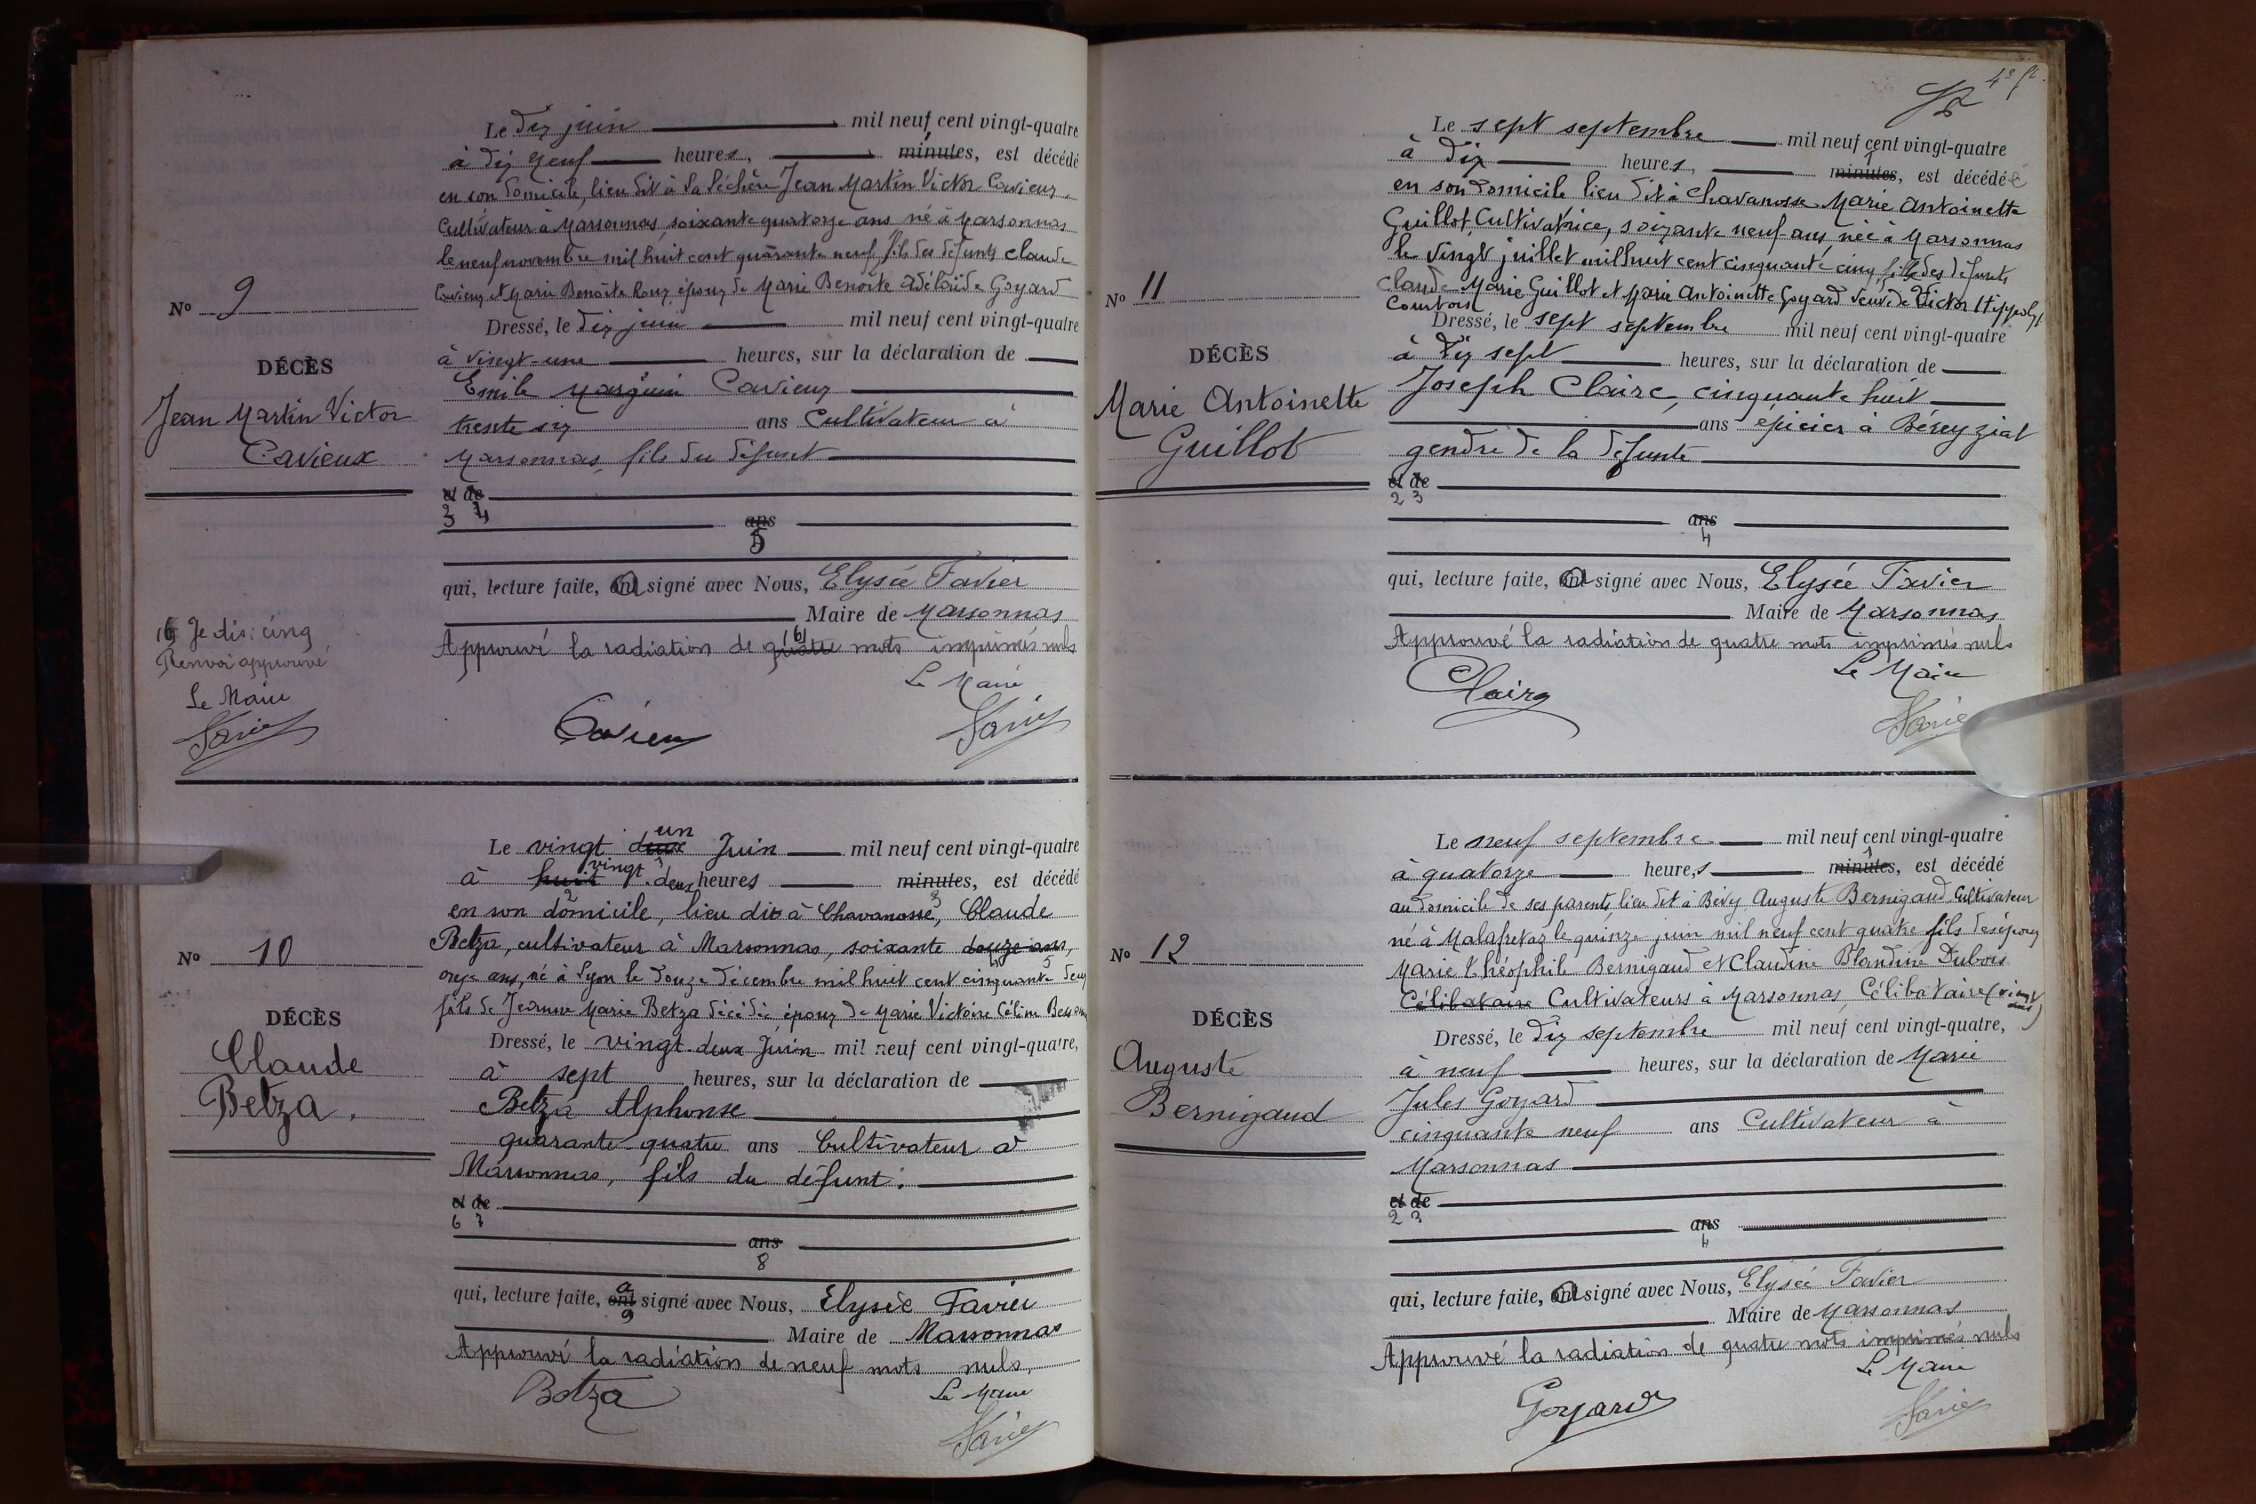 Le dix juin mil neuf cent vingt-quatre
à dix neuf heures, minutes, est décédé
en son domicile, lieu dit à la Jean Martin Victor Cavieux
Cultivateur à Marsonnas, soixante quatorze ans, né à Marsonnas
le neuf novembre mil huit cent quarante neuf, fils des défunts Claude
Cavieux et Marie Benoîte Roux, époux de Marie Benoîte Adélaïde Goyard
Nº 9
Dressé, le dix juin mil neuf cent vingt-quatre
à vingt-une heures, sur la déclaration de
DÉCÈS
Emile Marguin Cavieux
Jean Martin Victor
Cavieux
trente six ans Cultivateur à
Marsonnas, fils du défunt
et de
2 3 4
ans
5
qui, lecture faite, a signé avec Nous, Elysée Favier
Maire de Marsonnas
(6) Je dis: cinq
Renvoi approuvé
Le Maire
Favier
Approuvé la radiation de quatre (6) mots imprimés nuls
Le Maire
Cavieux
Favier
Le vingt deux un Juin mil neuf cent vingt-quatre
à huit vingt deux heures minutes, est décédé
en son domicile, lieu dit à Chavanosse, Claude
Betza, cultivateur à Marsonnas, soixante douze ans,
onze ans, né à Lyon le douze décembre mil huit cent cinquante deux
fils de Jeanne Marie Betza décédée époux de Marie Victoire Céline
Nº 10
DÉCÈS
Claude
Betza.
Dressé, le vingt-deux Juin mil neuf cent vingt-quatre,
à sept heures, sur la déclaration de
Betza Alphonse
quarante-quatre ans Cultivateur à
Marsonnas, fils du défunt.
et de
6 7
ans
8
qui, lecture faite, ont a signé avec Nous, Elysée Favier
9
Maire de Marsonnas
Approuvé la radiation de neuf mots nuls,
Le Maire
Betza
Favier
4e ft.
Le sept septembre mil neuf cent vingt-quatre
à dix heures, minutes, est décédée
en son domicile lieu dit à Chavanosse Marie Antoinette
Guillot, Cultivatrice, soixante neuf ans, née à Marsonnas
le vingt juillet mil huit cent cinquante cinq, fille des défunts
Claude Marie Guillot et Marie Antoinette Goyard veuve de Victor Hippolyte
Courtois
Nº 11
DÉCÈS
Marie Antoinette
Guillot
Dressé, le sept septembre mil neuf cent vingt-quatre
à dix sept heures, sur la déclaration de
Joseph Claire, cinquante huit
ans épicier à Béreyziat
gendre de la défunte
et de
2 3
ans
4
qui, lecture faite, a signé avec Nous, Elysée Favier
Maire de Marsonnas
Approuvé la radiation de quatre mots imprimés nuls
Le Maire
Claire
Favier
Le neuf septembre mil neuf cent vingt-quatre
à quatorze heures minutes, est décédé
au domicile de ses parents, lieu dit à Bévy Auguste Bernigaud Cultivateur
né à Malafretaz le quinze juin mil neuf cent quatre fils des époux
Marie Théophile Bernigaud et Claudine Blandine Dubois
Célibataire Cultivateurs à Marsonnas, Célibataire (vingt
ans)
Nº 12
DÉCÈS
Auguste
Bernigaud
Dressé, le dix septembre mil neuf cent vingt-quatre,
à neuf heures, sur la déclaration de Marie
Jules Goyard
cinquante neuf ans Cultivateur à
Marsonnas
et de
2 3
ans
4
qui, lecture faite, a signé avec Nous, Elysée Favier
Maire de Marsonnas
Approuvé la radiation de quatre mots imprimés nuls
Le Maire
Goyard
Favier